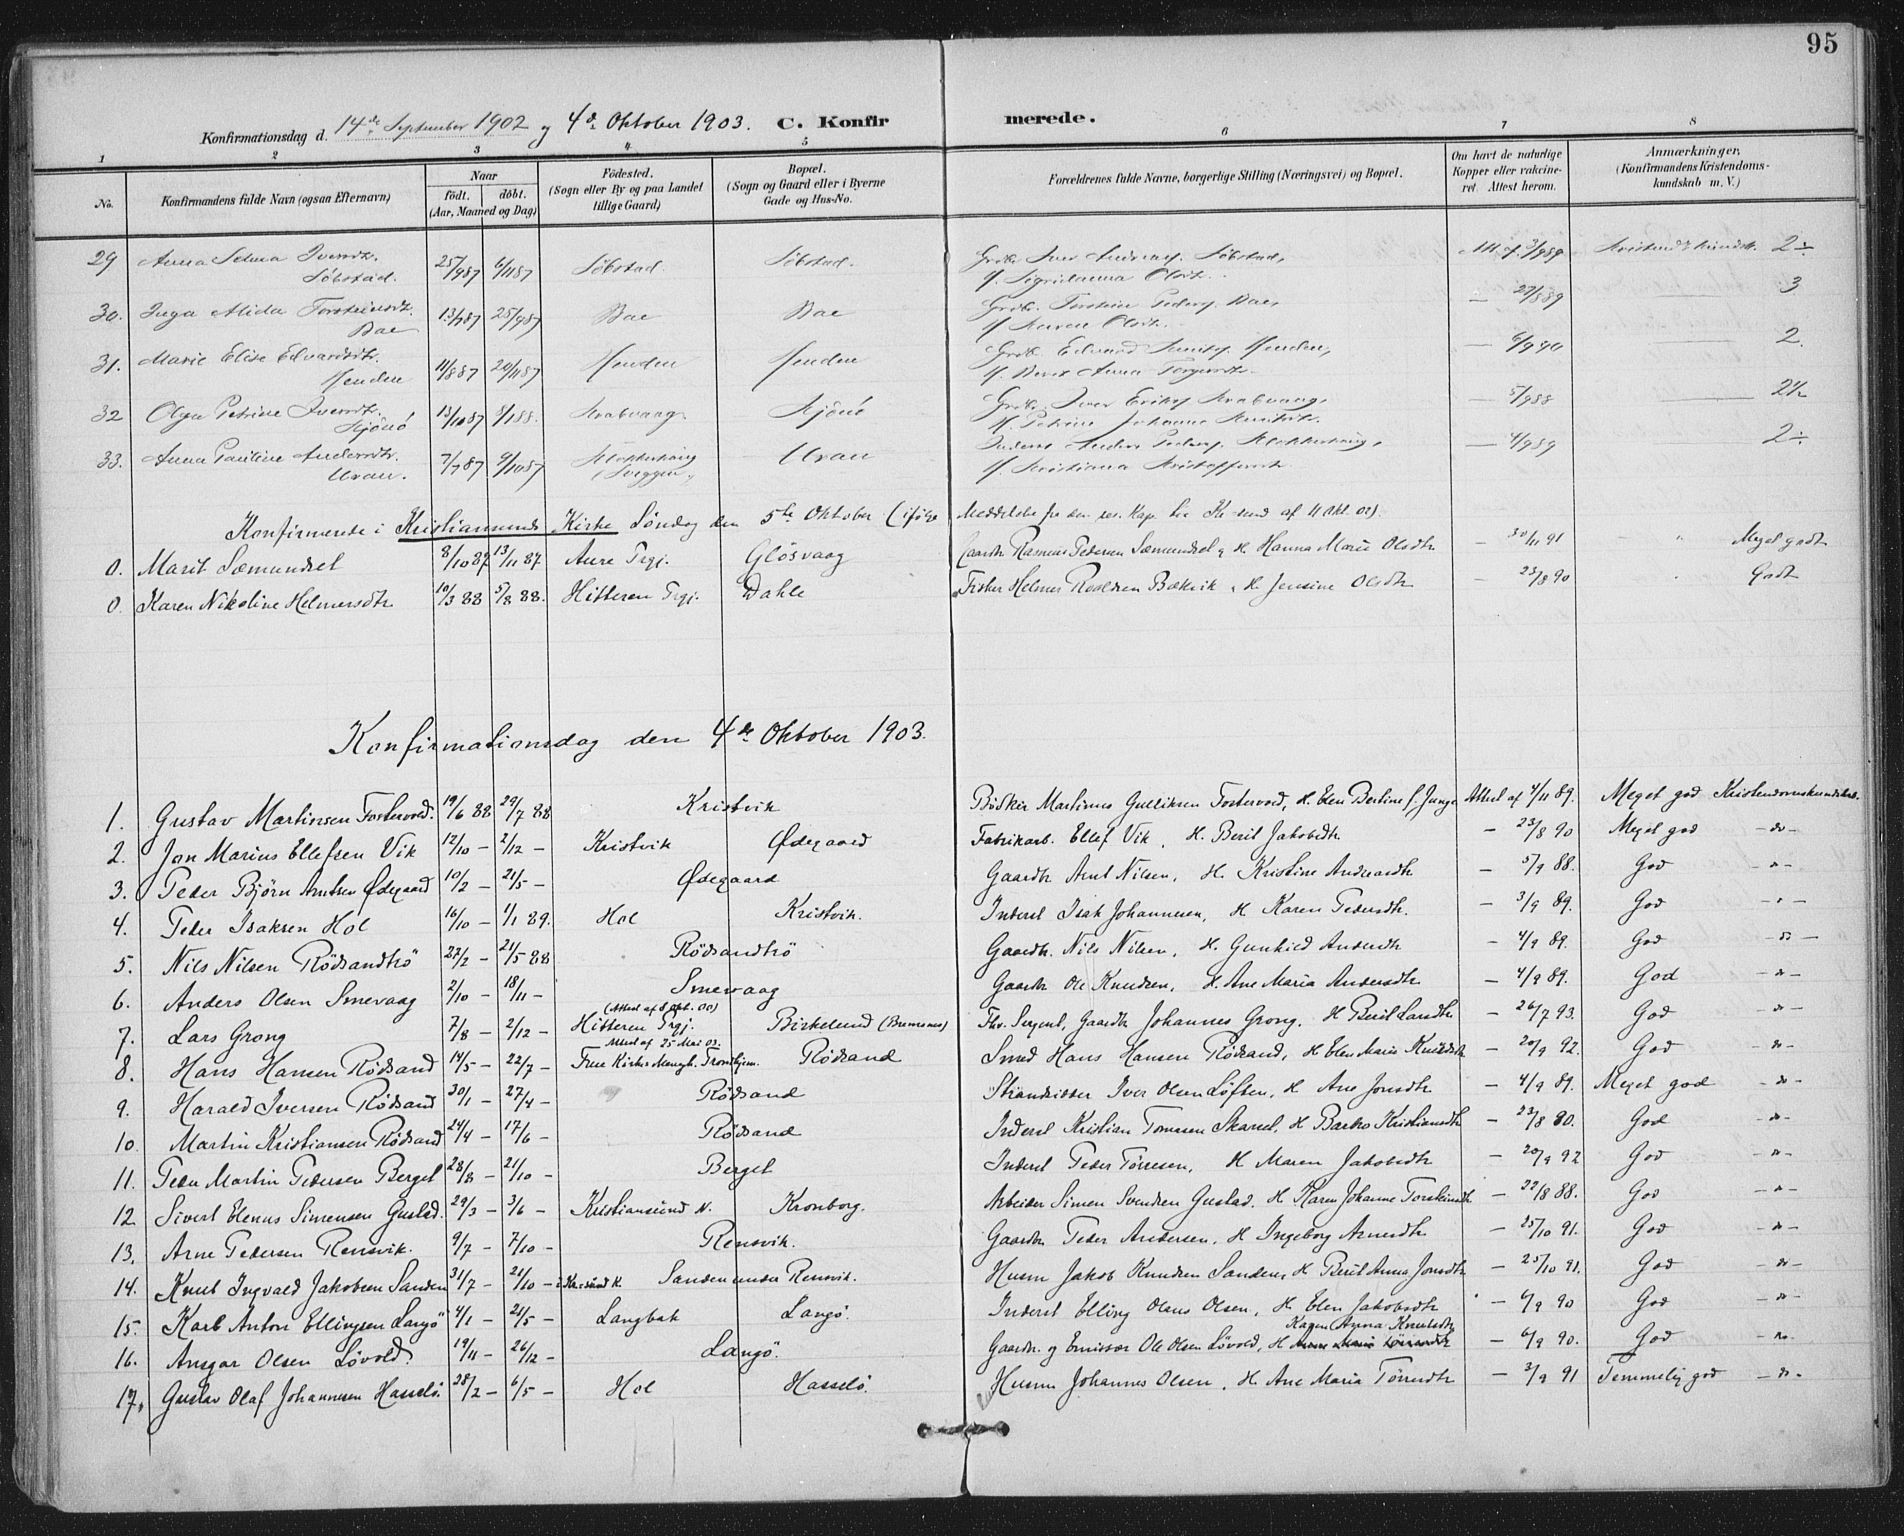 95
Konfirmationsdag d. 14de September 1902 og 4de Oktober 1903. C. Konfirmerede.
1 2 3 4 5 6 7 8
No.
Konfirmandens fulde Navn (ogsaa Efternavn)
Naar
født. døbt.
(Aar, Maaned og Dag)
Fødested.
(Sogn eller By og paa Landet
tillige Gaard)
Bopæl.
(Sogn og Gaard eller i Byerne
Gade og Hus-No.
Forældrenes fulde Navne, borgerlige Stilling (Næringsvei) og Bopæl.
Om havt de naturlige
Kopper eller vakcine-
ret. Attest herom.
Anmærkninger,
(Konfirmandens Kristendoms-
kundskab m. V.)
29 Anna Selma Iversdtr. Søbstad. 25/9 87 6/11 87 Søbstad Søbstad. Grdbr. Iver Søbstad, 3/9 89 2÷
30. Inga Alida Torsteinsdtr. Bae 13/7 87 25/9 87 Bae Bae Grdbr. Torstein Peders. Bae, H. Maren Olsdtr. — 27/8 89 — 3
31. Marie Elise Edvardsdtr. Henden 11/8 87 20/11 87 Henden Henden Grdbr. Edvard Henden, — 6/9 90 — 2.
32 Olga Petrine Iversdtr. 13/10 87 8/1 88. Kvabvaag Grdbr. Iver Eriks. Kvabvaag, H. Petrine Johanne — 5/9 88 — 2½
33. Anna Pauline Andersdtr. Uran. 7/7 87 9/10 87 Uran Inderst Anders Peders. H. Kristiana Kristoffersdtr. — 4/9 89 — 2÷
Konfirmerede i Kristiansunds Kirke Søndag den 5te Oktober (ifølge Meddelelse fra den res. Kap. til Kr.sund af 11 Okt. 02).
0. Marit Sæmundset 8/10 87 13/11 87. Aure Prgj. Gløsvaag Gaardbr. Rasmus Pedersen Sæmundset & H. Hanna Marie Olsdtr — 30/11 91 — " Meget godt
0. Karen Nikoline Helmersdtr 10/3 88 5/8 88. Hitteren Prgj. Dahle Fisker Helmer Bækvik & H. Jensine Olsdtr — 23/8 90 Godt
Konfirmationsdag den 4de Oktober 1903.
1. Gustav Martinsen Fostervold. 19/6 88 29/7 88 Kristvik Bødker Martinus Gulliksen Fostervold, H. Elen Bertine f. Junge Attest af 4/11 89. Meget god Kristendomskundskab.
2. Jon Marius Ellefsen Vik 12/10 — 2/12 — Kristvik Ødegaard Fabrikarb. Ellef Vik, H. Beril Jakobsdtr — 23/8 90 Meget god —do—
3. Peder Bjørn Arntsen Ødegaard 10/2 — 21/5 — Ødegaard Gaardbr Arnt Nilsen, H. Kristine Andreasdtr — 5/9 88. God —"—
4. Peder Isaksen Hol 16/10 — 1/1 89. Hol Kristvik. Inderst Isak Johannesen, H Karen Pedersdtr. — 3/9 89. God —"—
5. Nils Nilsen Rödsandtrö 27/2 — 21/5 88 Rödsandtrö Gaardbr. Nils Nilsen, H. Gunhild Andersdtr — 4/9 89. God —do—
6. Anders Olsen Smevaag 2/10 — 18/11 — Smevaag Gaardbr Ole Knudsen, H. Ane Maria Andersdtr — 4/9 89. God —"—
7. Lars Grong 7/8 — 2/12 — (Attest af 8 Okt. 00) Hitteren Prgj. Birkelund (Bremsnes) Fhv. Sergent, Gaardbr Johannes Grong. H Beril Larsdtr — 26/7 93. God —"—
8. Hans Hansen Rödsand 14/5 — 22/7 — Attest af 25 Mai 03. Frue Kirkes Menigh. Trondhjem. Rödsand Smed Hans Hansen Rödsand, H Elen Marie Knudsdtr — 20/9 92. God —"—
9. Harald Iversen Rödsand 30/1 — 27/4 — Rödsand Strandsidder Iver Olsen Løften, H Ane Jonsdtr — 4/9 89. Meget god —do—
10. Martin Kristiansen Rödsand 24/4 — 17/6 — Rödsand Inderst Kristian Tomesen Skarset, H Barbro Kristiansdtr — 23/8 80. God —"—
11. Peder Martin Pedersen Berget 28/8 — 21/10 — Berget Inderst Peder Tørresen, H Maren Jakobsdtr — 20/9 92 God —"—
12 Sivert Elenus Simensen Gustad. 29/3 — 3/6 — Kristiansund N. Kronborg. Arbeider Simen Svendsen Gustad. H Karen Johanne Torsteinsdtr — 22/8 88. God —"—
13. Arne Pedersen Rensvik. 9/7 — 7/10 — Rensvik. Gaardbr Peder Andersen, H Ingeborg Arnesdtr — 25/10 91. God —"—
14. Knut Ingvald Jakobsen Sanden 31/7 — 21/10 — Kr.sund K. Sanden under Rensvik. Husm Jakob Knudsen Sanden, H Beril Anna Jonsdtr — 25/10 91. God —"—
15. Karl Anton Ellingsen Langö 4/1 — 21/5 — Langbak Langö. Inderst Elling Olaus Olsen, H. Elen Jakobsdtr — 6/9 90 God —"—
16. Ansgar Olsen Løvold. 19/11 — 26/12 — Langö. Gaardbr. og Emissær Ole Olsen Løvold, H Karen Anna Knudsdtr — 6/9 90. God —"—
17. Gustav Olaf Johannesen Hasselö. 28/2 — 6/5 — Hol Hasselö. Husm Johannes Olsen, H. Ane Maria Tørresdtr — 3/9 91 Temmelig god —"—